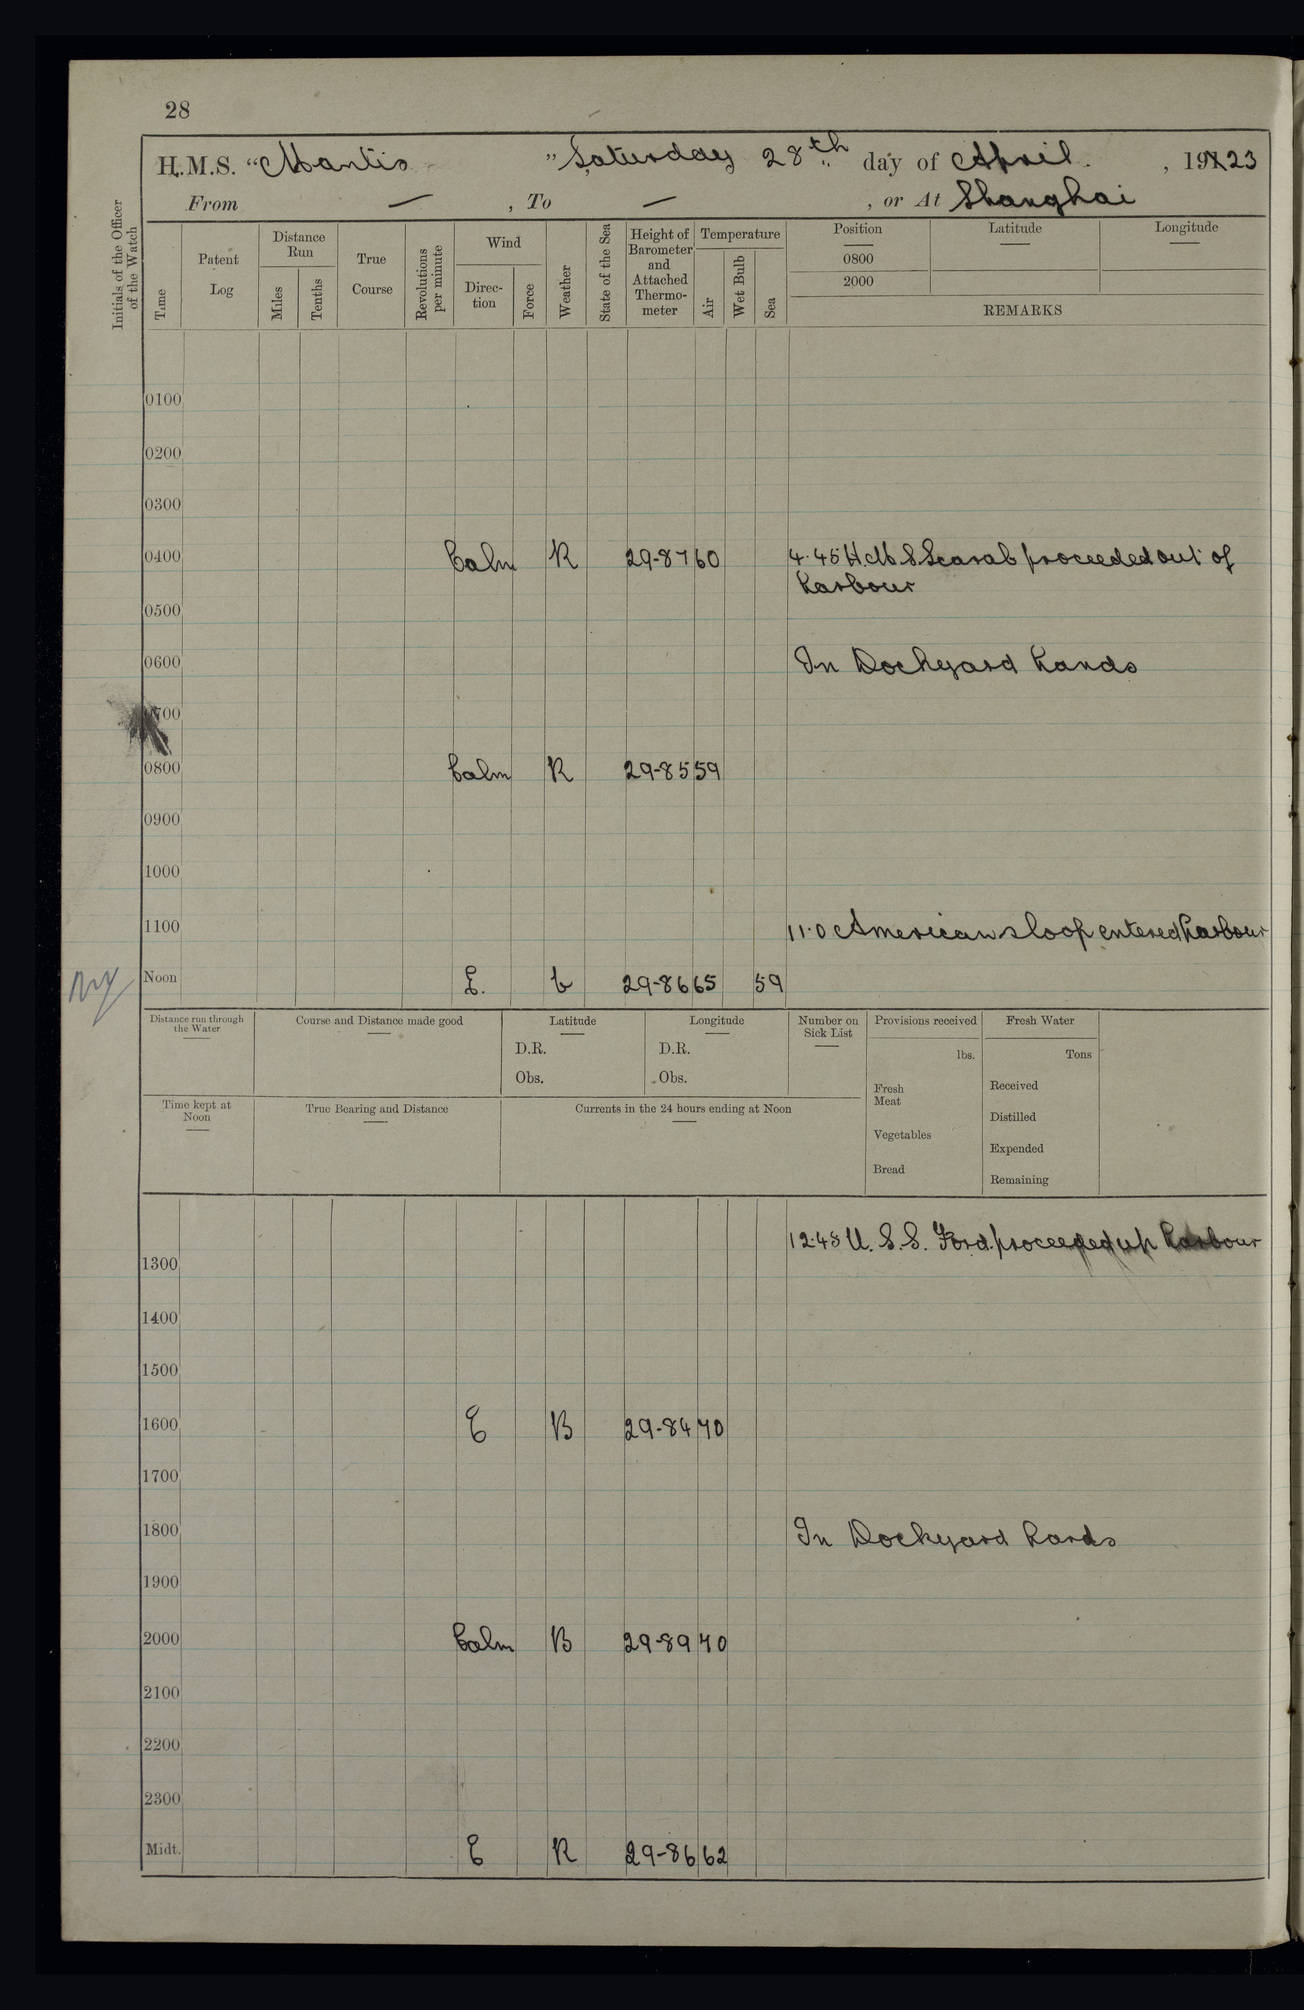 28
H.M.S. "Mantis " Saturday 28th day of April , 1923
From — , To — , or At Shanghai
Initials of the Officer of the Watch
Time
Patent Log
Distance Run
Miles
Tenths
True Course
Revolutions per minute
Wind
Direc-tion
Force
Weather
State of the Sea
Height of Barometer and Attached Thermo-meter
Temperature
Air
Wet Bulb
Sea
Position Latitude Longitude
0800
2000
REMARKS
0100
0200
0300
0400 Calm R 29-87 60 4.45 H.M.S Scarab proceeded out of
harbour
0500
0600 In Dockyard hands
0700
0800 Calm R 29-85 59
0900
1000
1100 11.0 American sloop entered harbour
Noon E. b 29-86 65 59
Distance run through the Water
Course and Distance made good
Latitude
D.R.
Obs.
Longitude
D.R.
Obs.
Number on Sick List
Provisions received
lbs.
Fresh Meat
Vegetables
Bread
Fresh Water
Tons
Received
Distilled
Expended
Remaining
Time kept at Noon
True Bearing and Distance
Currents in the 24 hours ending at Noon
12.48 U.S.S. Ford. proceeded up harbour
1300
1400
1500
1600 E B 29-84 70
1700
1800 In Dockyard hands
1900
2000 Calm B 29-89 70
2100
2200
2300
Midt. E R 29-86 62